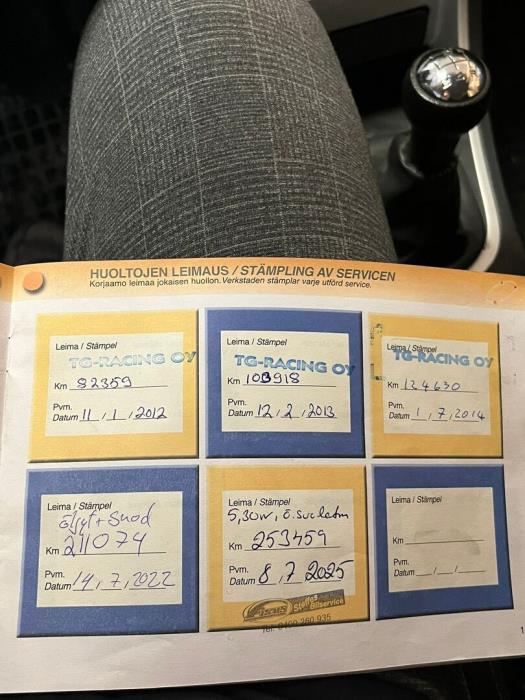 HUOLTOJEN LEIMAUS / STÄMPLING AV SERVICEN
Korjaamo leimaa jokaisen huollon. Verkstaden stämplar varje utförd service.
Leima / Stämpel
TG-RACING OY
Km 82359
Pvm.
Datum 11 / 1 / 2012
Leima / Stämpel
TG-RACING OY
Km 103918
Pvm.
Datum 12 / 2 / 2013
Leima / Stämpel
TG-RACING OY
Km 124630
Pvm.
Datum 1 / 7 / 2014
Leima / Stämpel
Km 211074
Pvm.
Datum 14, 7, 2022
Leima / Stämpel
5,30W, ö.
Km 253459
Pvm.
Datum 8, 7 2025
Bilservice
Tel. 0400 260 935
Leima / Stämpel
Km
Pvm.
Datum / /